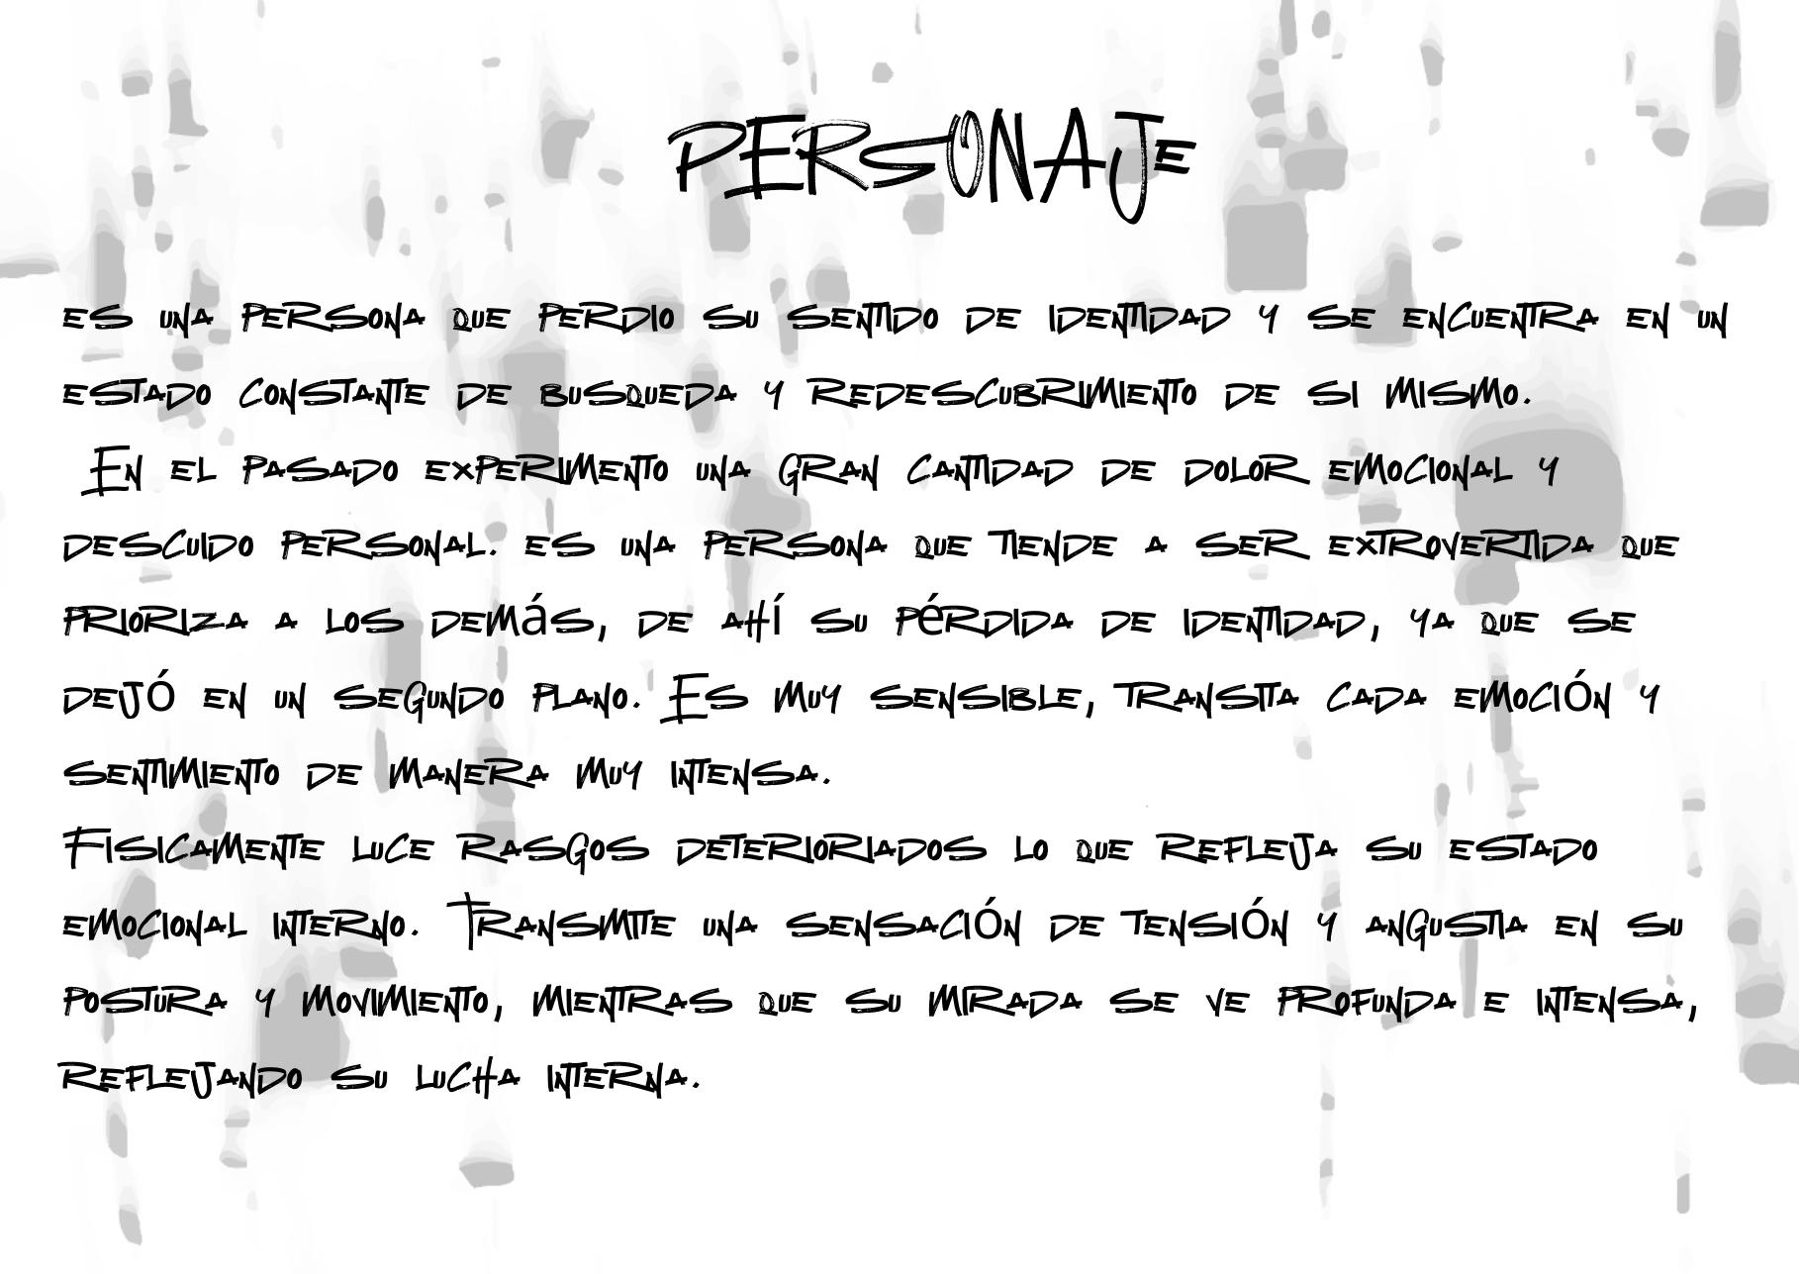 PERSONAJE
ES UNA PERSONA QUE PERDIO SU SENTIDO DE IDENTIDAD Y SE ENCUENTRA EN UN
ESTADO CONSTANTE DE BUSQUEDA Y REDESCUBRIMIENTO DE SI MISMO.
EN EL PASADO EXPERIMENTO UNA GRAN CANTIDAD DE DOLOR EMOCIONAL Y
DESCUIDO PERSONAL. ES UNA PERSONA QUE TIENDE A SER EXTROVERTIDA QUE
PRIORIZA A LOS DEMáS, DE AHí SU PéRDIDA DE IDENTIDAD, YA QUE SE
DEJÓ EN UN SEGUNDO PLANO. ES MUY SENSIBLE, TRANSITA CADA EMOCIÓN Y
SENTIMIENTO DE MANERA MUY INTENSA.
FISICAMENTE LUCE RASGOS DETERIORIADOS LO QUE REFLEJA SU ESTADO
EMOCIONAL INTERNO. TRANSMITE UNA SENSACIÓN DE TENSIÓN Y ANGUSTIA EN SU
POSTURA Y MOVIMIENTO, MIENTRAS QUE SU MIRADA SE VE PROFUNDA E INTENSA,
REFLEJANDO SU LUCHA INTERNA.